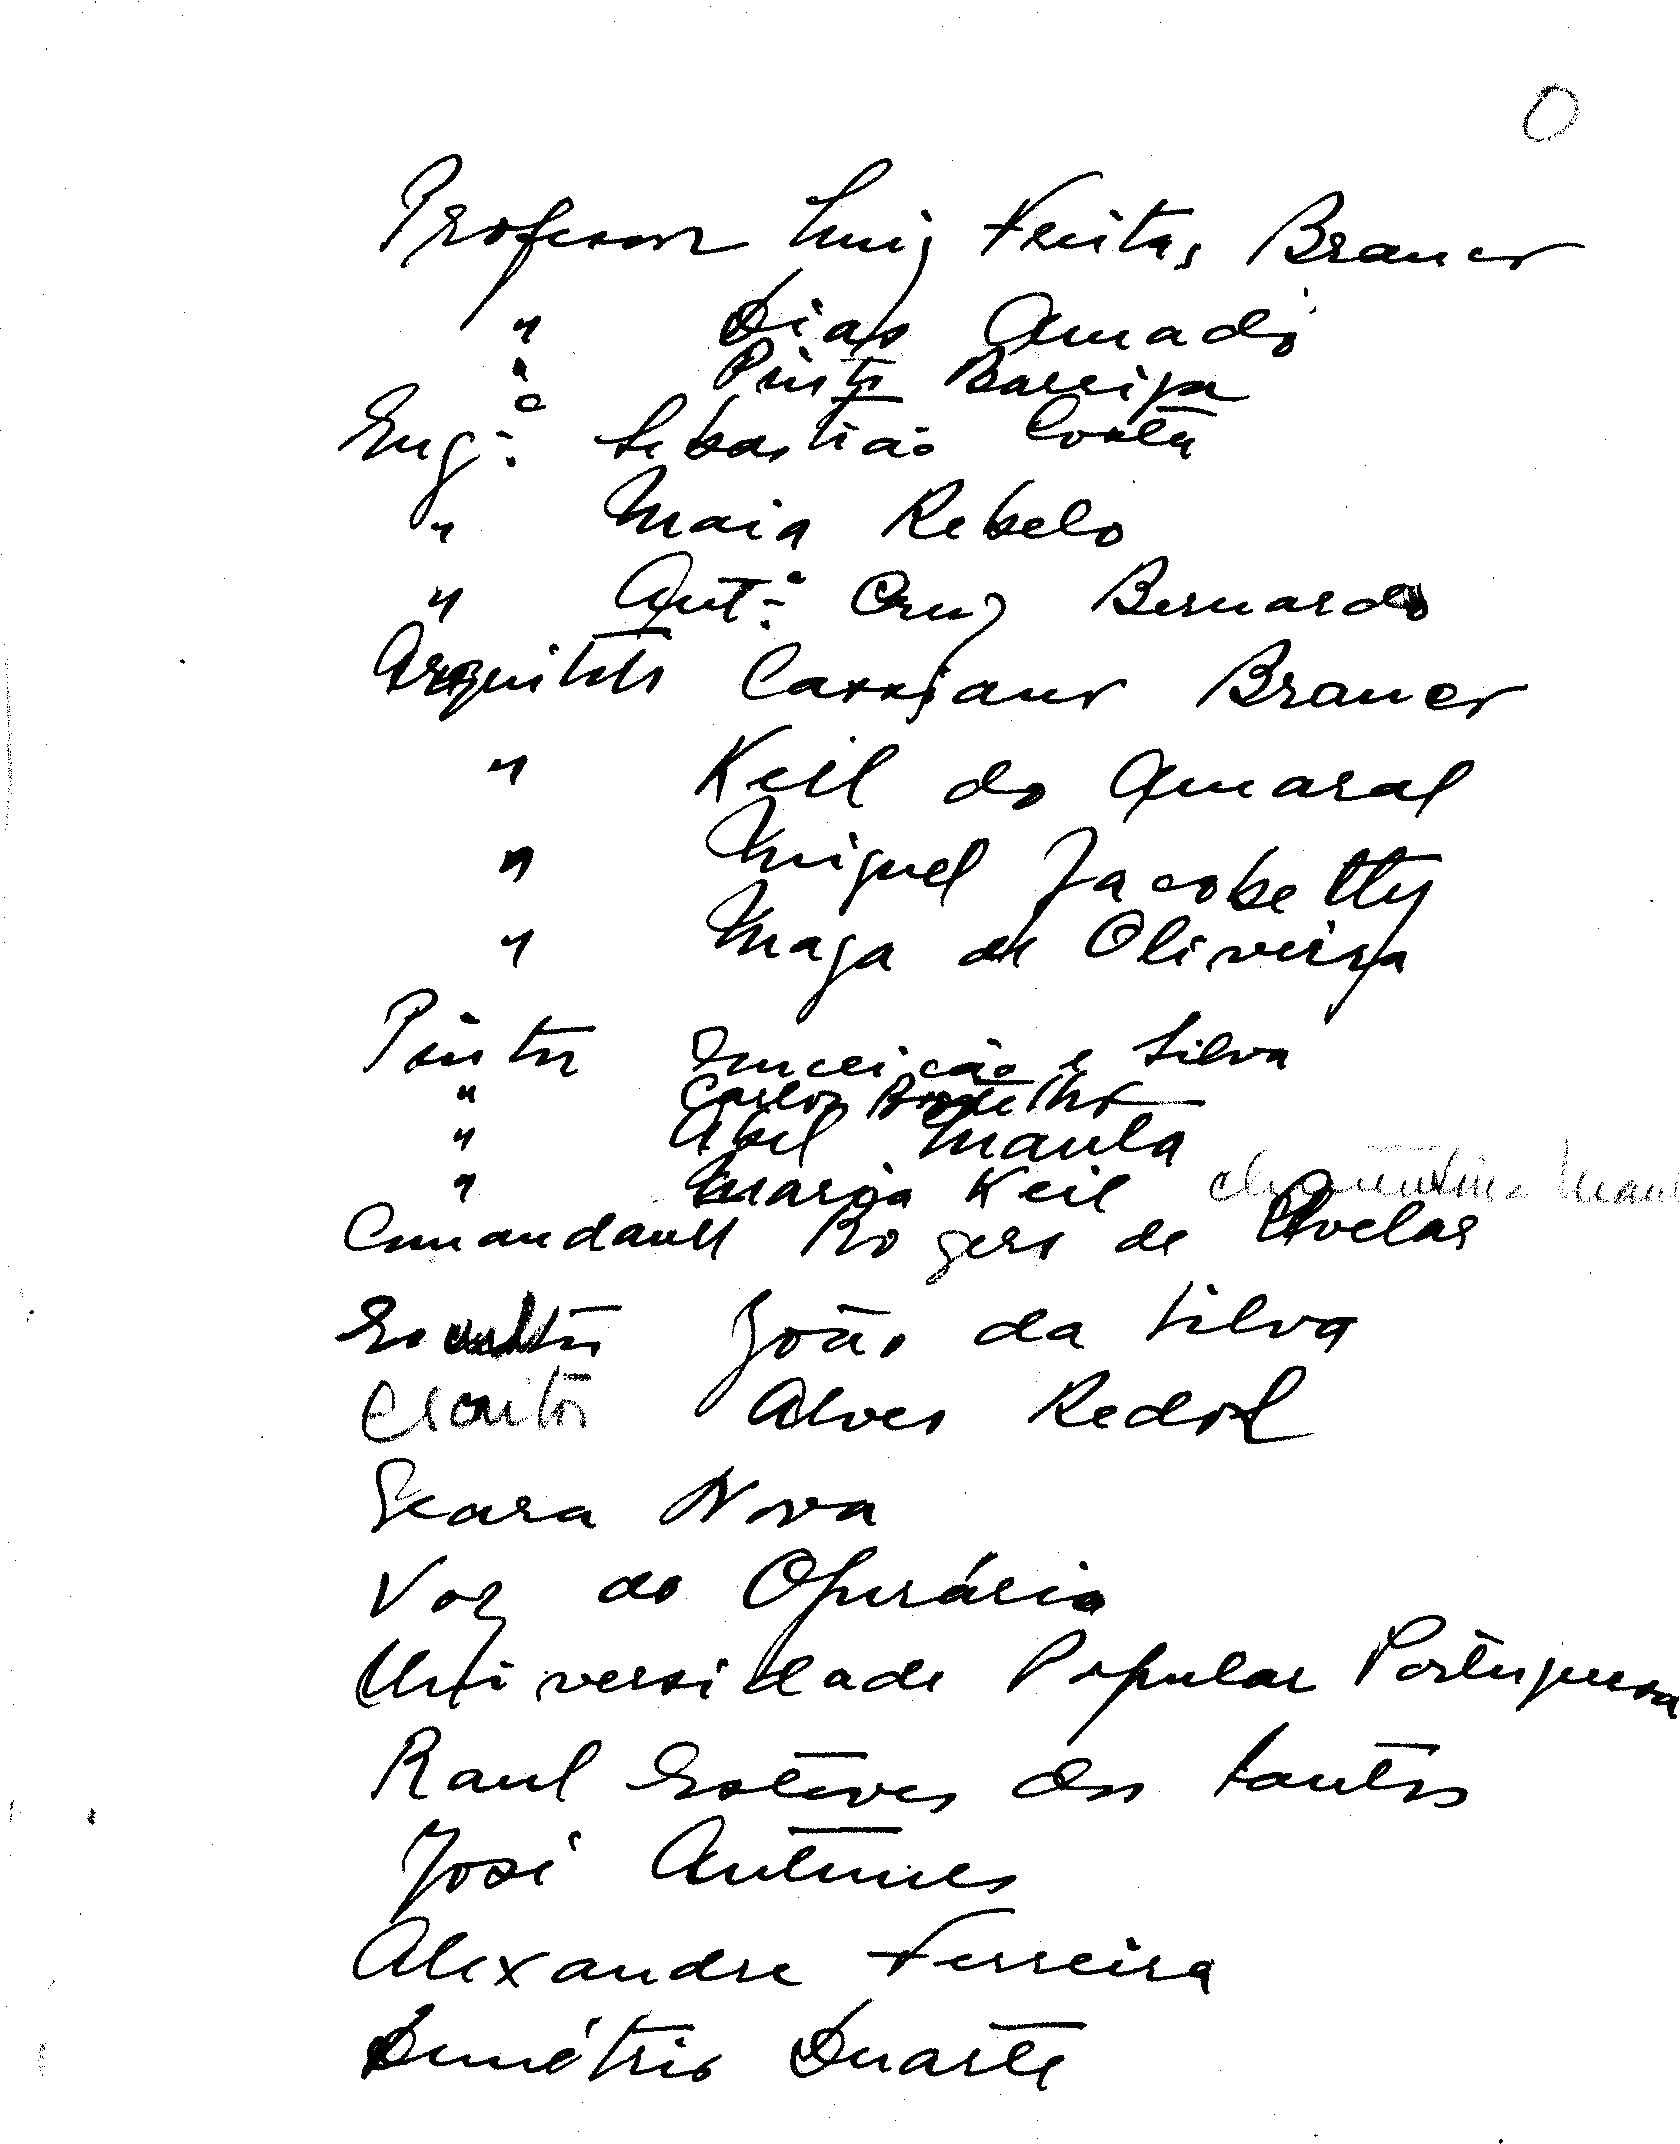 Professor Luiz Freitas Branco
" Dias Amado
" Pinto Barriga
Engº: Sebastião Costa
" Maia Rebelo
" Antº: Cruz Bernardo
Arquiteto Cassiano Branco
" Keil do Amaral
" Miguel Jacobetty
" de Oliveira
Pintor Conceição e Silva
" Carlos Botelho
" Abel Manta
" Maria Keil Clementina Man
Comandante Rogers de Avelar
Escultor João da Silva
Escritor Alves Redol
Seara Nova
Voz do Operário
Universidade Popular Portuguesa
Raul Esteves dos Santos
José Antunes
Alexandre Ferreira
Demétrio Duarte